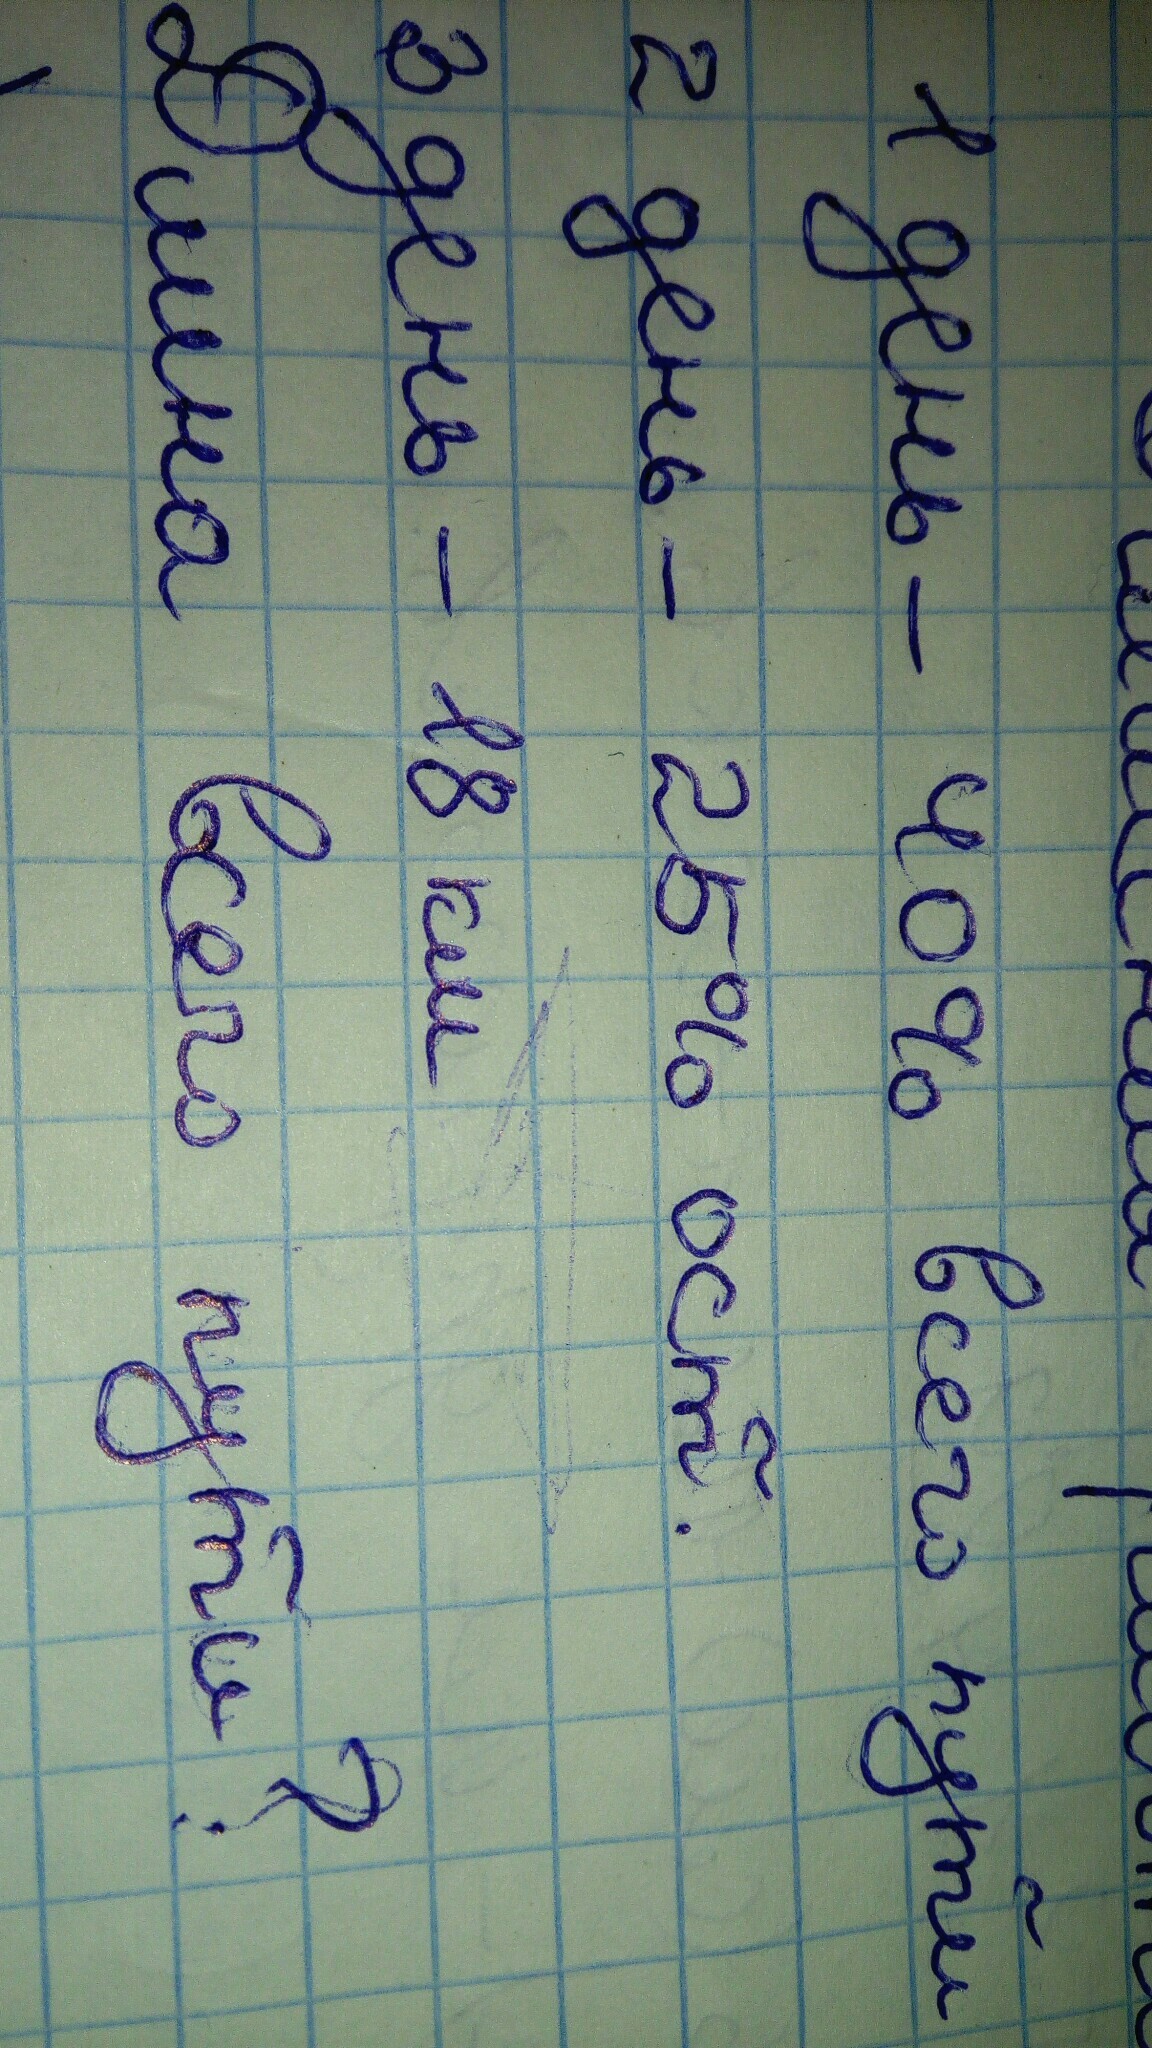 1 день - 40% всего пути
2 день - 25% ост.
3 день - 18 км
Длина всего пути?